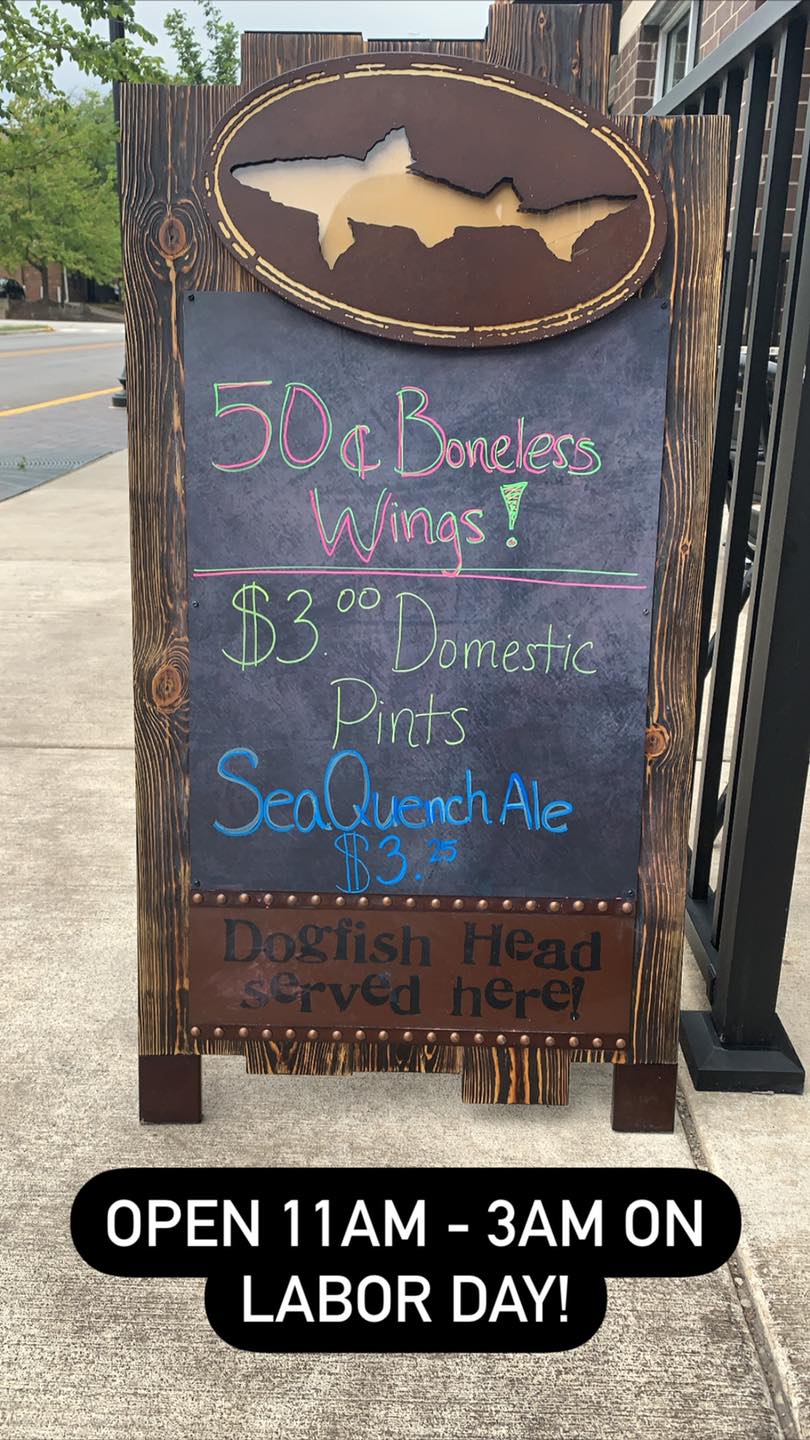 50¢ Boneless
Wings!
$3.00 Domestic
Pints
SeaQuench Ale
$3.25
Dogfish Head
served here!
OPEN 11AM - 3AM ON
LABOR DAY!